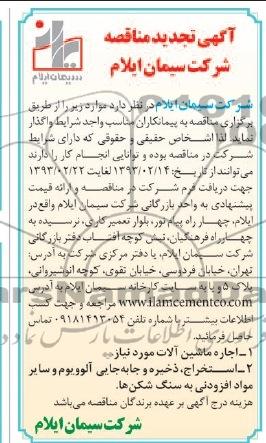 آگهی تجدید مناقصه
شرکت سیمان ایلام
سیمان ایلام
شرکت سیمان ایلام در نظر دارد موارد زیر را از طریق
برگزاری مناقصه به پیمانکاران مناسب واجد شرایط واگذار
نماید لذا اشخاص حقیقی و حقوقی که دارای شرایط
شرکت در مناقصه بوده و توانایی انجام کار را دارند
می‌توانند از تاریخ: ۱۳۹۳/۰۲/۱۴ لغایت ۱۳۹۳/۰۲/۲۲
جهت دریافت فرم شرکت در مناقصه و ارائه قیمت
پیشنهادی به واحد بازرگانی شرکت سیمان ایلام واقع در
ایلام، چهارراه پیام نور، بلوار تعمیرکاری، نرسیده به
چهارراه فرهنگیان، نبش کوچه آفتاب دفتر بازرگانی
شرکت سیمان ایلام، یا دفتر مرکزی شرکت به آدرس:
تهران، خیابان فردوسی، خیابان تقوی، کوچه انوشیروانی،
پلاک ۵ و یا به سایت کارخانه سیمان ایلام به آدرس
www.ilamcementco.com مراجعه و جهت کسب
اطلاعات بیشتر با شماره تلفن ۰۹۱۸۱۴۱۳۰۵۴ تماس
حاصل فرمائید.
۱ـ اجاره ماشین آلات مورد نیاز
۲ـ استخراج، ذخیره و جابه‌جایی آلوویوم و سایر
مواد افزودنی به سنگ شکن‌ها.
هزینه درج آگهی بر عهده برندگان مناقصه می‌باشد
شرکت سیمان ایلام